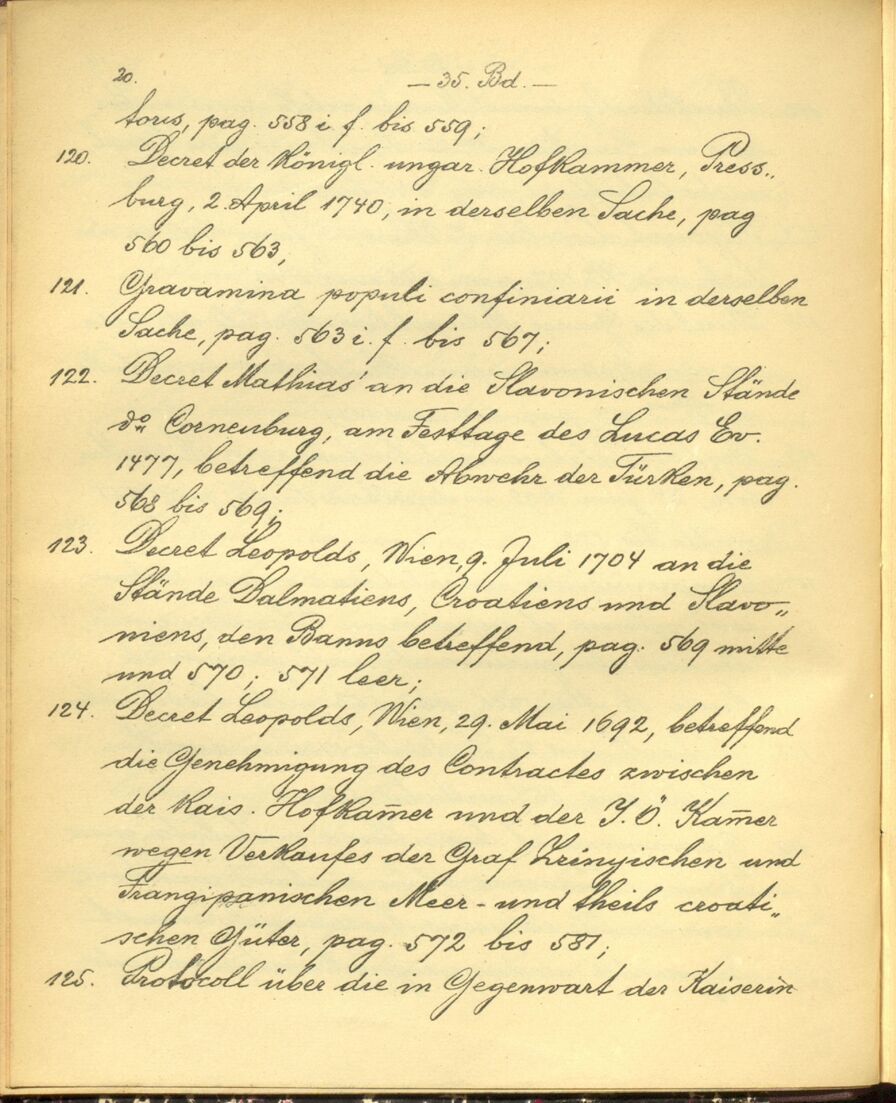 20.
— 35. Bd. —
toris, pag. 558 i. f. bis 559;
120. Decret der Königl. ungar. Hofkammer, Press„
burg, 2. April 1740, in derselben Sache, pag
560 bis 563,
121. Gravamina populi confiniarii in derselben
Sache, pag. 563 i. f. bis 567;
122. Decret Mathias' an die Slavonischen Stände
do Corneuburg, am Festtage des Lucas Ev.
1477, betreffend die Abwehr der Türken, pag.
568 bis 569;
123. Decret Leopolds, Wien, 9. Juli 1704 an die
Stände Dalmatiens, Croatiens und Slavo„
niens, den Banus betreffend, pag. 569 mitte
und 570; 571 leer;
124. Decret Leopolds, Wien, 29. Mai 1692, betreffend
die Genehmigung des Contractes zwischen
der Kais. Hofkam̅er und der I. Ö. Kam̅er
wegen Verkaufes der Graf Zrinyischen und
Frangipanischen Meer- und theils croati„
schen Güter, pag. 572 bis 581;
125. Protocoll über die in Gegenwart der Kaiserin